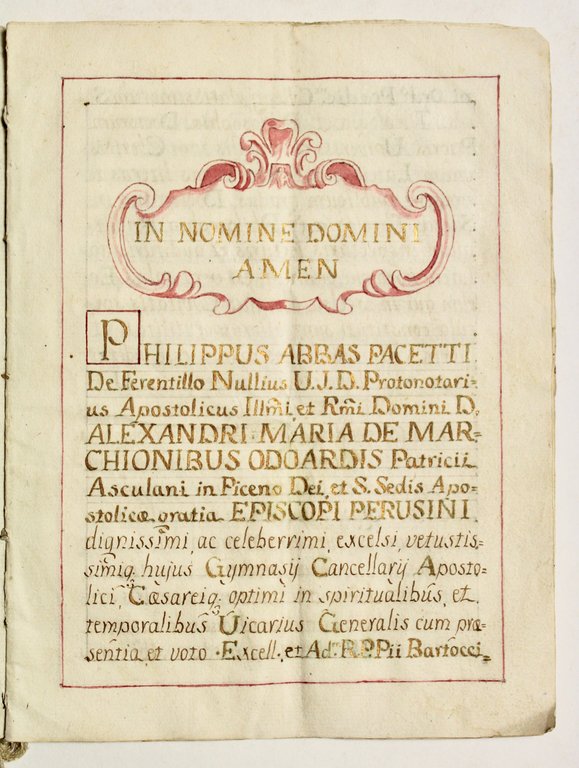 IN NOMINE DOMINI
AMEN
PHILIPPUS ABBAS PACETTI
De Ferentillo Nullius U.J.D. Protonotari=
us Apostolicus Illm̃i, et Rm̃i Domini D.
ALEXANDRI MARIA DE MAR=
CHIONIBUS ODOARDIS Patricii
Asculani in Piceno Dei, et S. Sedis Apo=
stolicæ gratia EPISCOPI PERUSINI
dignissimi, ac celeberrimi, excelsi, vetustis=
simiq; hujus Gymnasij Cancellarij Aposto=
lici, Cæsareiq; optimi in spiritualibus, et
temporalibus Uicarius Generalis cum præ=
sentia, et voto Excell., et Ad. R.P. Pii Bartocci=